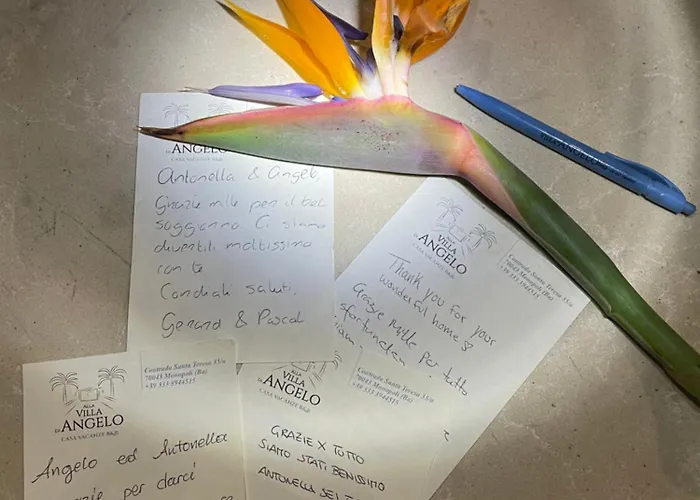 ANGELO
CASA VACANZE B&B
Antonella & Angelo,
Grazie mille per il bel
soggiorno. Ci siamo
divertiti moltissimo
con te
Cordiali saluti.
Gerard & Pascal
ALLA
VILLA
DI ANGELO
CASA VACANZE B&B
Contrada Santa Teresa
70043 Monopoli (Ba)
+39 333 3944515
Thank you for your
wonderful home
Grazie Mille per tutto
ALLA
VILLA
DI ANGELO
CASA VACANZE B&B
Contrada Santa Teresa
70043 Monopoli (Ba)
+39 333 3944515
Angelo ed Antonella
per darci
ALLA
VILLA
DI ANGELO
CASA VACANZE B&B
Contrada Santa Teresa
70043 Monopoli (Ba)
+39 333 3944515
GRAZIE X TUTTO
SIAMO STATI BENISSIMO
ANTONELLA SEI